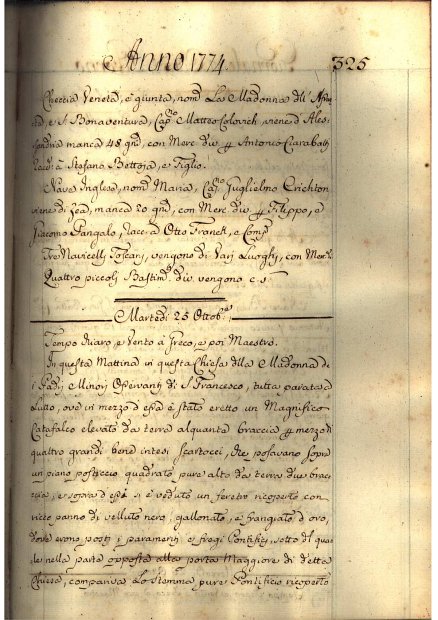 Anno 1774. 325
Checcia Veneta, è giunta, nomª La Madonna dll'
e S. Bonaventura, Capno Matteo Colovich, viene d' Ales:
sandria manca 48 gni, con Merc. div. p Antonio Ciarabatti
Racc: à Stefano Bettoja, e Figlio.
Nave Inglese, nomª Maria, Capno Guglielmo Crichton
viene di Zea, manca 20 gni, con Merc. div. p Filippo, e
Giacomo Pangalo, Racc: a Otto Franck, e Comp.
Tre Navicelli Toscani, vengono di Varj Luoghi, con Merc.
Quattro piccoli Bastimti div. vengono c. s.
Martedi 25 Ottobre
Tempo chiaro, e Vento à Greco, e poi Maestro.
In questa Mattina in questa Chiesa dlla Madonna de
i Padri Minori Osservanti di S. Francesco, tutta parata a
Lutto, ove in mezzo d' essa è stato eretto un Magnifico
Catafalco elevato da terra alquanta braccia p mezzo di
quattro grandi bene intesi scartocci, che posavano sopra
un piano posticcio quadrato pure alto da terra due brac:
cia, e sopra d' essi si è veduto un feretro ricoperto con
ricco panno di velluto nero, gallonato, e frangiato d' oro,
dove erono posti i paramenti e fregi Pontifici, sotto dl qua
le nella parte opposta alla porta Maggiore di detta
Chiesa, compariva Lo Stemma pure Pontificio ricoperto